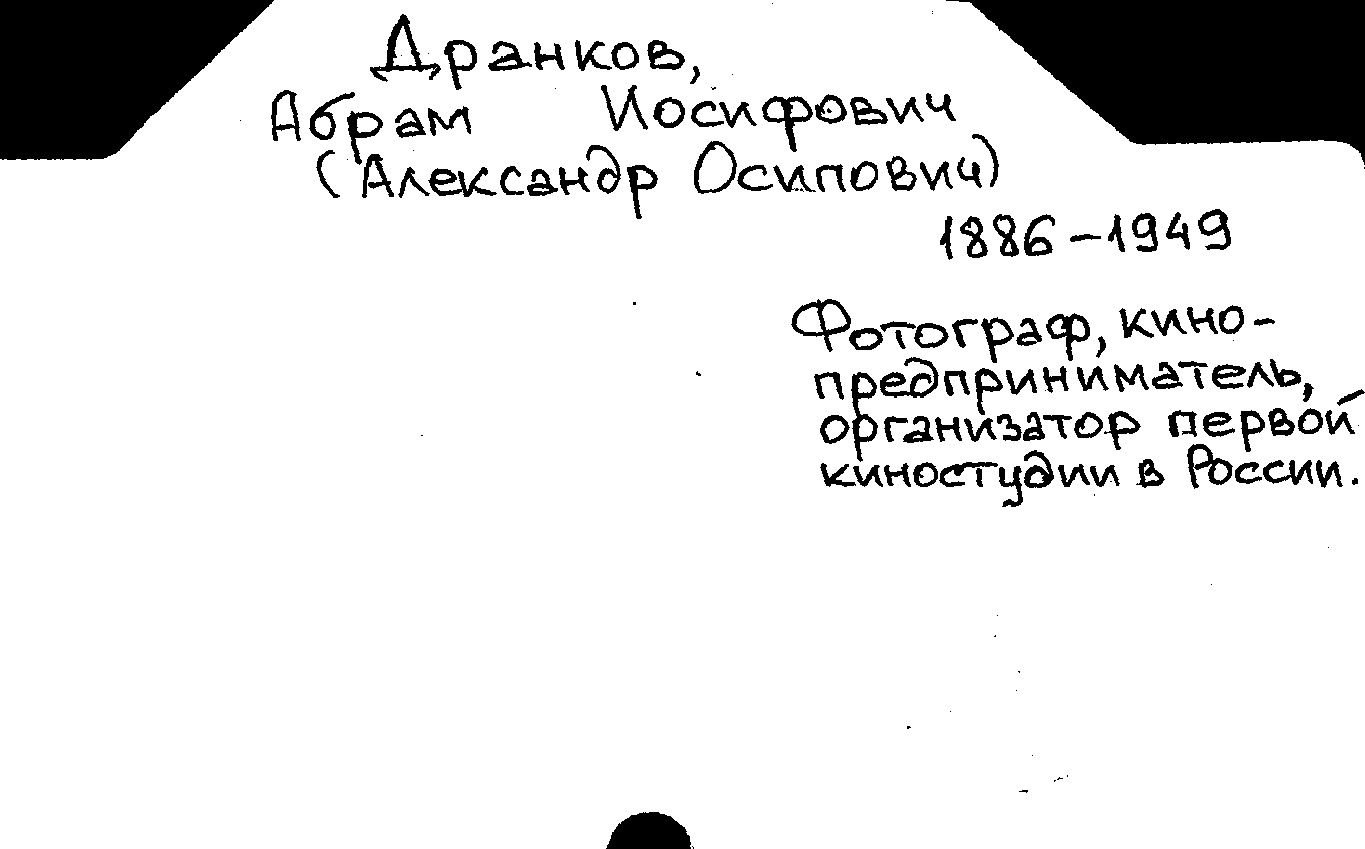 Дранков,
Абрам Иосифович
(Александр Осипович)
1886-1949
Фотограф, кино-
предприниматель,
организатор первой
киностудии в России.